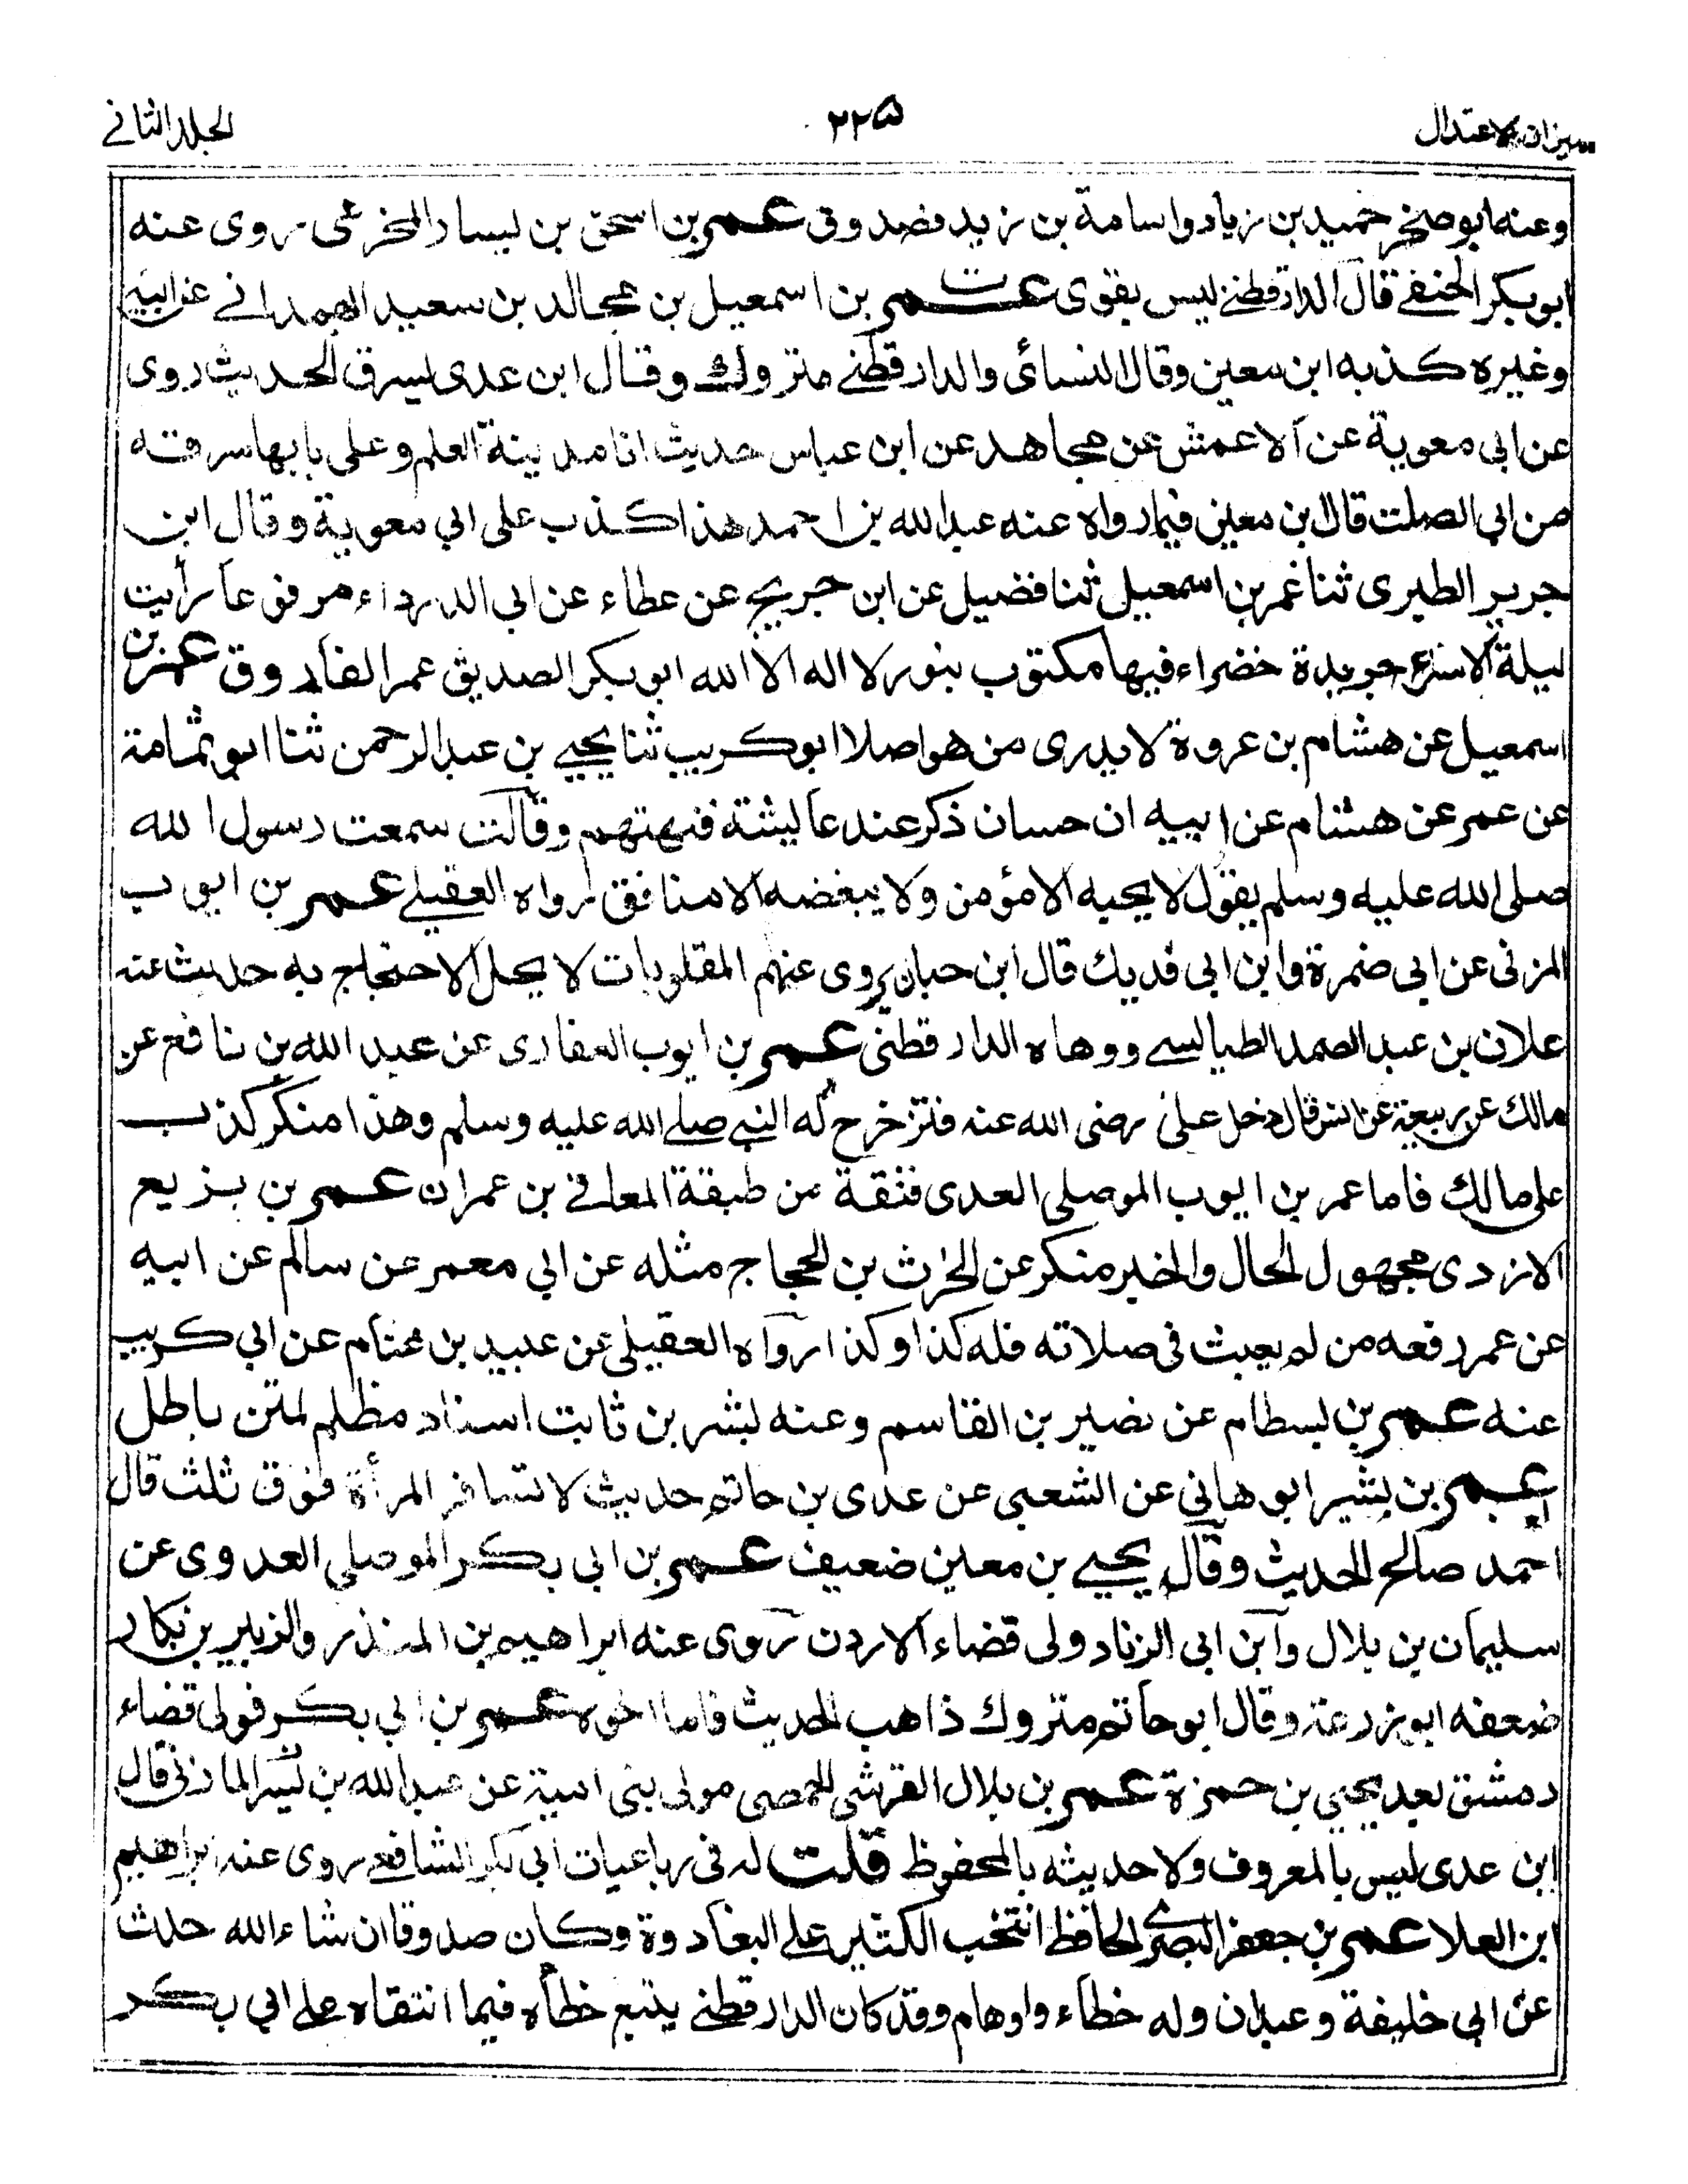 ميزان الاعتدال
٢٢٥
الجلد الثاني
وعنه ابو صخر حميد بن زياد واسامة بن زيد فصدوق عمر بن اسحق بن يسار المخرمي روى عنه
ابو بكر الحنفي قال الدارقطني ليس بقوى عمر بن اسمعيل بن مجالد بن سعيد الهمداني عن ابيه
وغيره كذبه ابن معين وقال النسائى والدارقطني متروك وقال ابن عدى يسرق الحديث روى
عن ابي معوية عن الاعمش عن مجاهد عن ابن عباس حديث انا مدينة العلم وعلى بابها سرقه
من ابي الصلت قال بن معين فيما رواه عنه عبد الله بن احمد هذا كذب على ابي معوية وقال ابن
جرير الطبرى ثنا عمر بن اسمعيل ثنا فضيل عن ابن جريج عن عطاء عن ابي الدرداء مرفوعا رأيت
ليلة الاسراء جريدة خضراء فيها مكتوب بنور لا اله الا الله ابو بكر الصديق عمر الفاروق عمر بن
اسمعيل عن هشام بن عروة لا يدرى من هو اصلا ابو كريب ثنا يحيى بن عبد الرحمن ثنا ابو ثمامة
عن عمر عن هشام عن ابيه ان حسان ذكر عند عايشة فنهتهم وقالت سمعت رسول الله
صلى الله عليه وسلم يقول لا يحبه الا مؤمن ولا يبغضه الا منافق رواه العقيلي عمر بن ايوب
المزنى عن ابي ضمرة وابن ابى فديك قال ابن حبان يروى عنهم المقلوبات لا يحل الاحتجاج به حديث عنه
علان بن عبد الصمد الطيالسي ووهاه الدارقطنى عمر بن ايوب الغفارى عن عبد الله بن نافع عن
مالك عن ربيعة عن انس قال دخل على رضى الله عنه فتزحزح له النبي صلى الله عليه وسلم وهذا منكر كذب
على مالك فاما عمر بن ايوب الموصلي العبدى فثقة من طبقة المعافي بن عمران عمر بن بزيع
الازدى مجهول الحال والخبر منكر عن الحرث بن الحجاج مثله عن ابي معمر عن سالم عن ابيه
عن عمر رفعه من لم يعبث فى صلاته فله كذا وكذا رواه العقيلي عن عبيد بن غنام عن ابي كريب
عنه عمر بن بسطام عن نصير بن القاسم وعنه بشر بن ثابت اسناد مظلم لمتن باطل
عمر بن بشير ابو هاني عن الشعبى عن عدى بن حاتم حديث لا تسافر المرأة فوق ثلث قال
احمد صالح الحديث وقال يحيى بن معين ضعيف عمر بن ابى بكر الموصلي العدوى عن
سليمان بن بلال وابن ابى الزناد ولى قضاء الاردن روى عنه ابراهيم بن المنذر والزبير بن بكار
ضعفه ابو زرعة وقال ابو حاتم متروك ذاهب الحديث فاما اخوه عمر بن ابي بكر فولى قضاء
دمشق بعد يحيى بن حمزة عمر بن بلال القرشى الحمصى مولى بنى امية عن عبد الله بن بسر المازنى قال
ابن عدى ليس بالمعروف ولا حديثه بالمحفوظ قلت له فى رباعيات ابى بكر الشافعي روى عنه ابراهيم
ابن العلا عمر بن جعفر البصرى الحافظ انتخب الكثير على البغاددة وكان صدوقا ان شاء الله حدث
عن ابي خليفة وعبدان وله خطاء واوهام وقد كان الدارقطني يتبع خطأه فيما انتقاه على ابي بكر